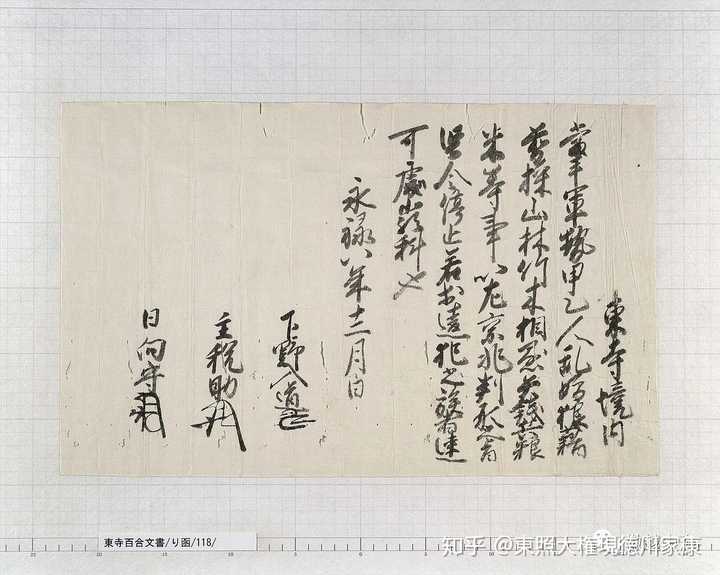 東寺境内
當手軍勢甲乙人乱妨狼藉
剪採山林竹木相懸矢銭兵粮
米等事以左京兆判形旨
堅令停止若於違犯之族者速
可處嚴科也
永禄八年十二月日
下野入道
主税助
日向守
東寺百合文書/り函/118/
知乎 @東照大権現徳川家康